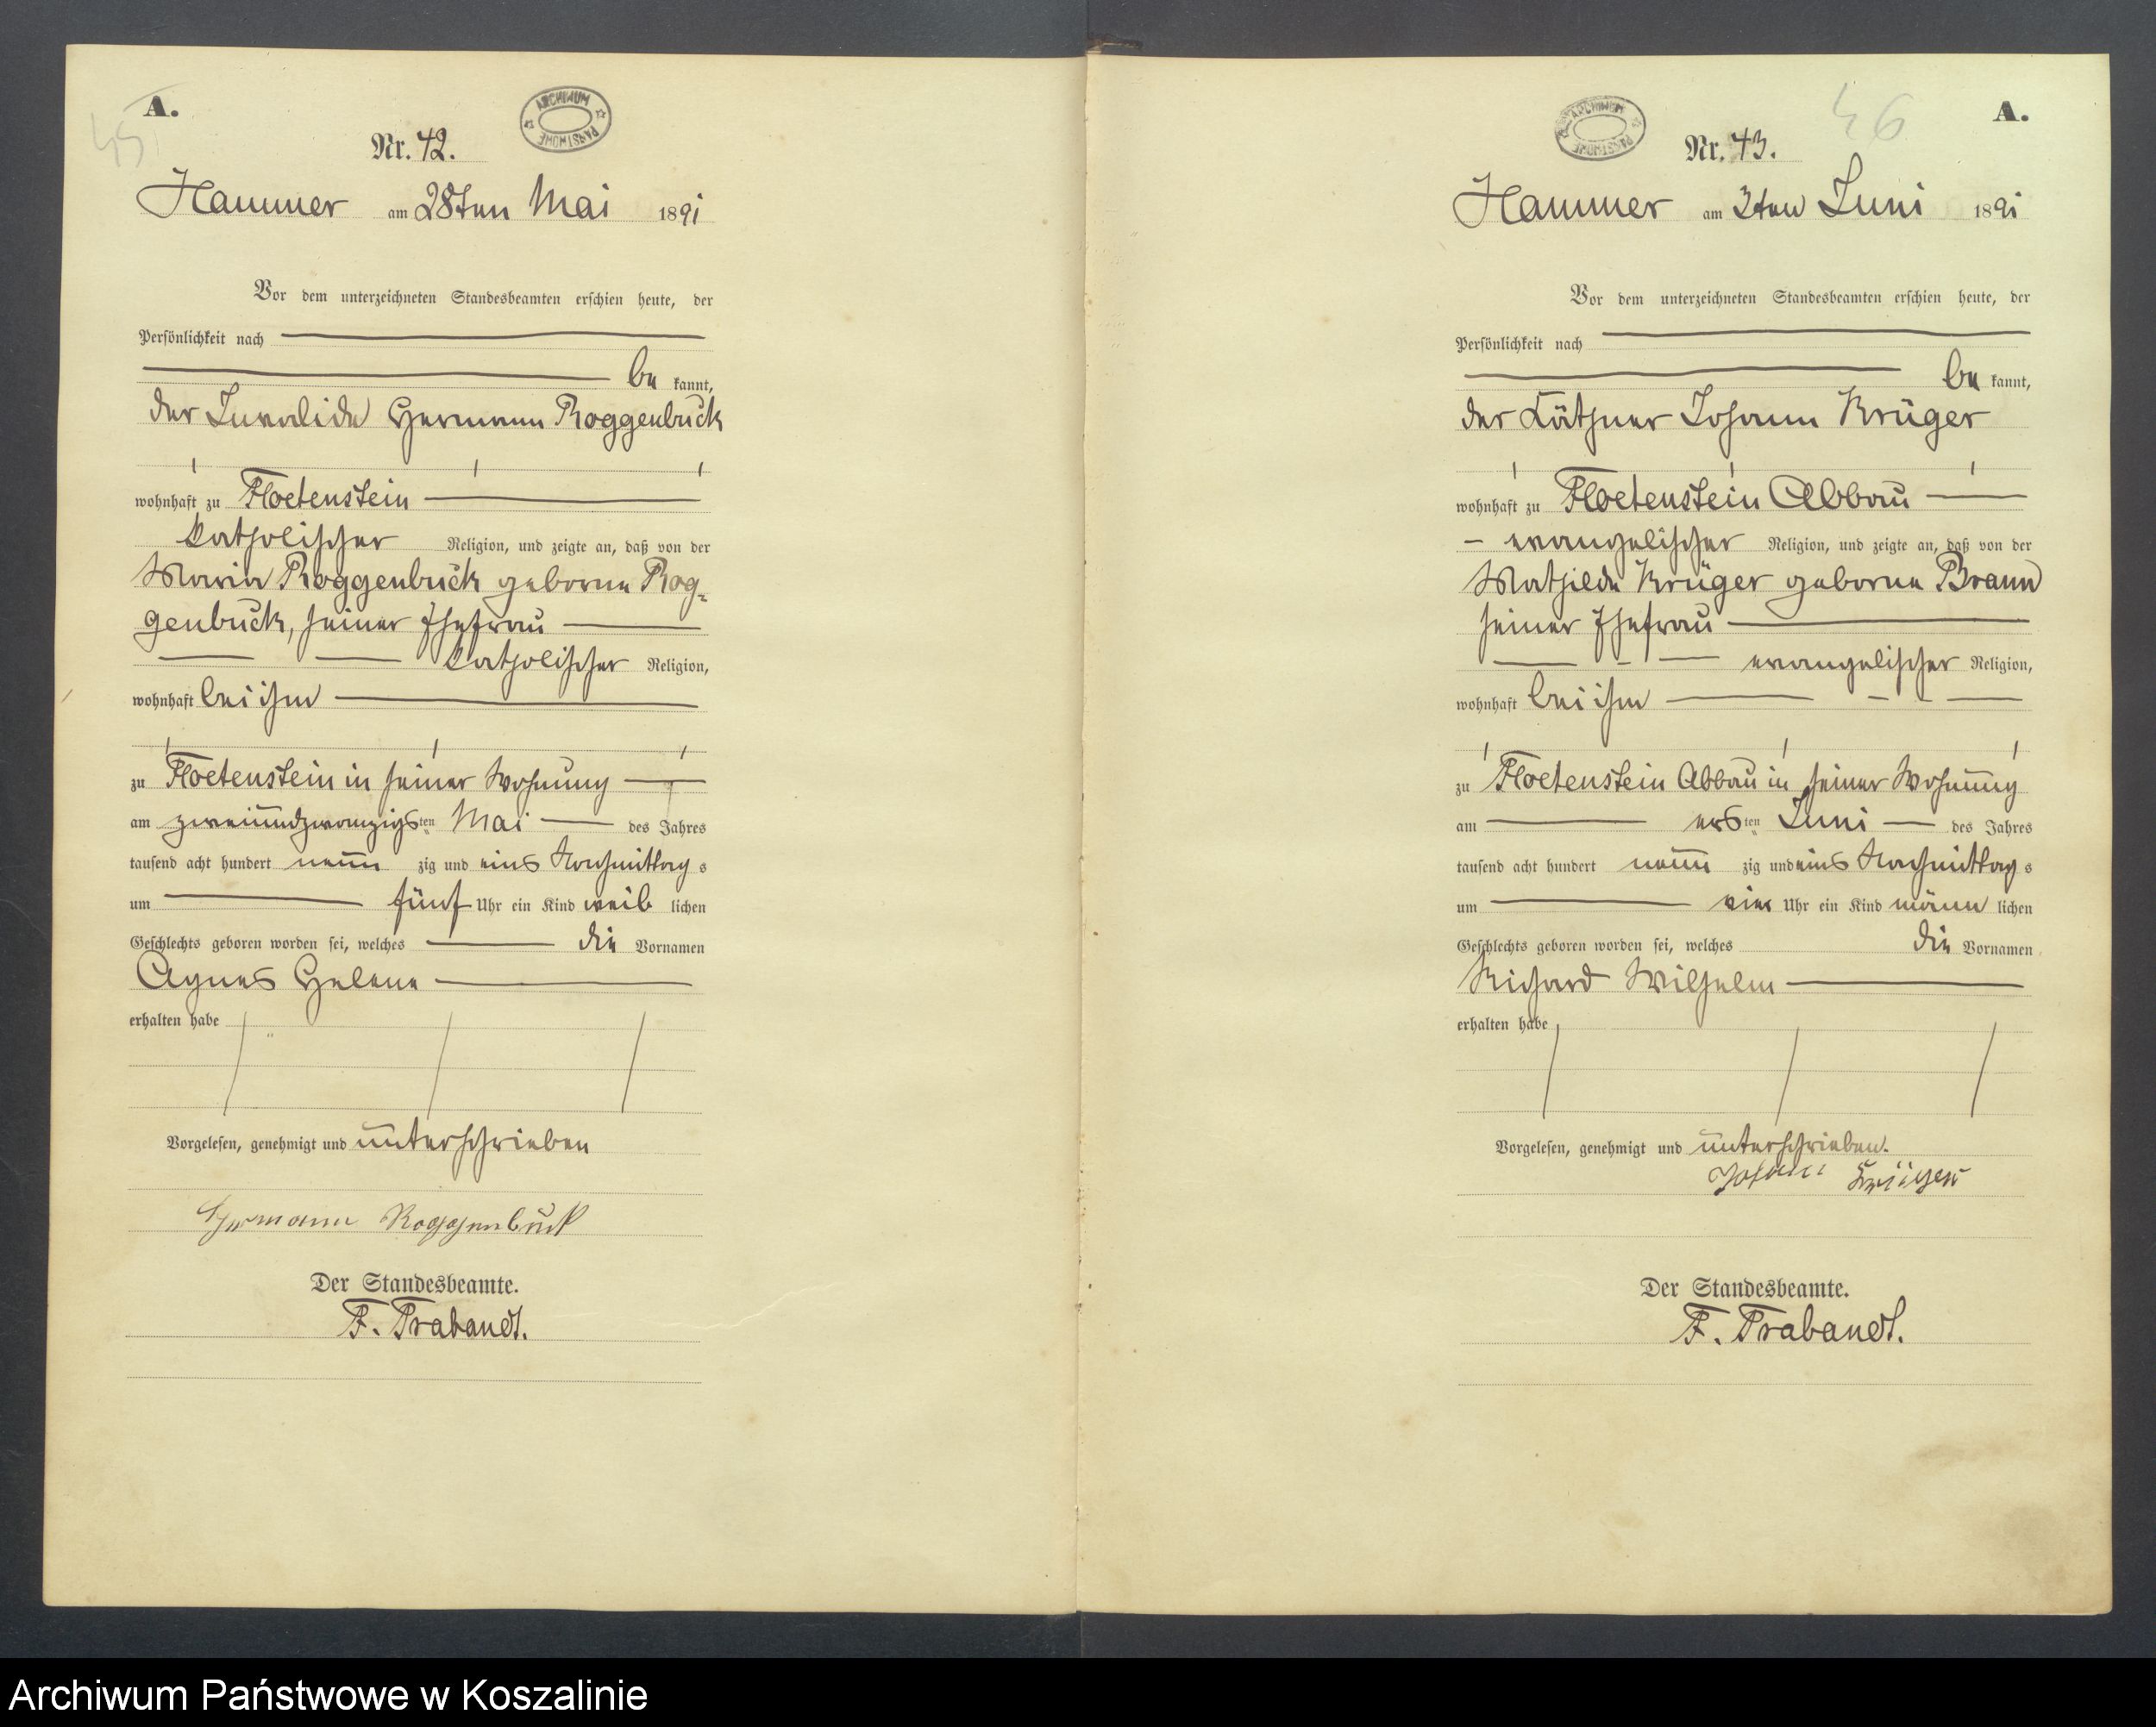 A.
45
ARCHIWUM PAŃSTWOWE
Nr. 42.
Hammer am 28ten Mai 1891
Vor dem unterzeichneten Standesbeamten erschien heute, der
Persönlichkeit nach
be kannt,
der Invalide Hermann Roggenbuck
wohnhaft zu Floetenstein
katholischer Religion, und zeigte an, daß von der
Maria Roggenbuck geborne Rog-
genbuck, seiner Ehefrau
katholischer Religion,
wohnhaft bei ihm
zu Floetenstein in seiner Wohnung
am zweiundzwanzigsten Mai des Jahres
tausend acht hundert neun zig und eins Nachmittags
um fünf Uhr ein Kind weib lichen
Geschlechts geboren worden sei, welches die Vornamen
Agnes Helene
erhalten habe
Vorgelesen, genehmigt und unterschrieben
Hermann Roggenbuck
Der Standesbeamte.
F. Trabandt.
46
A.
ARCHIWUM PAŃSTWOWE
Nr. 43.
Hammer am 3ten Juni 1891
Vor dem unterzeichneten Standesbeamten erschien heute, der
Persönlichkeit nach
be kannt,
der Käthner Johann Krüger
wohnhaft zu Floetenstein Abbau
evangelischer Religion, und zeigte an, daß von der
Mathilde Krüger geborne Braun
seiner Ehefrau
evangelischer Religion,
wohnhaft bei ihm
zu Floetenstein Abbau in seiner Wohnung
am ersten Juni des Jahres
tausend acht hundert neun zig und eins Nachmittags
um Uhr ein Kind männ lichen
Geschlechts geboren worden sei, welches die Vornamen
Richard Wilhelm
erhalten habe
Vorgelesen, genehmigt und unterschrieben.
Johann Krüger
Der Standesbeamte.
F. Trabandt.
Archiwum Państwowe w Koszalinie